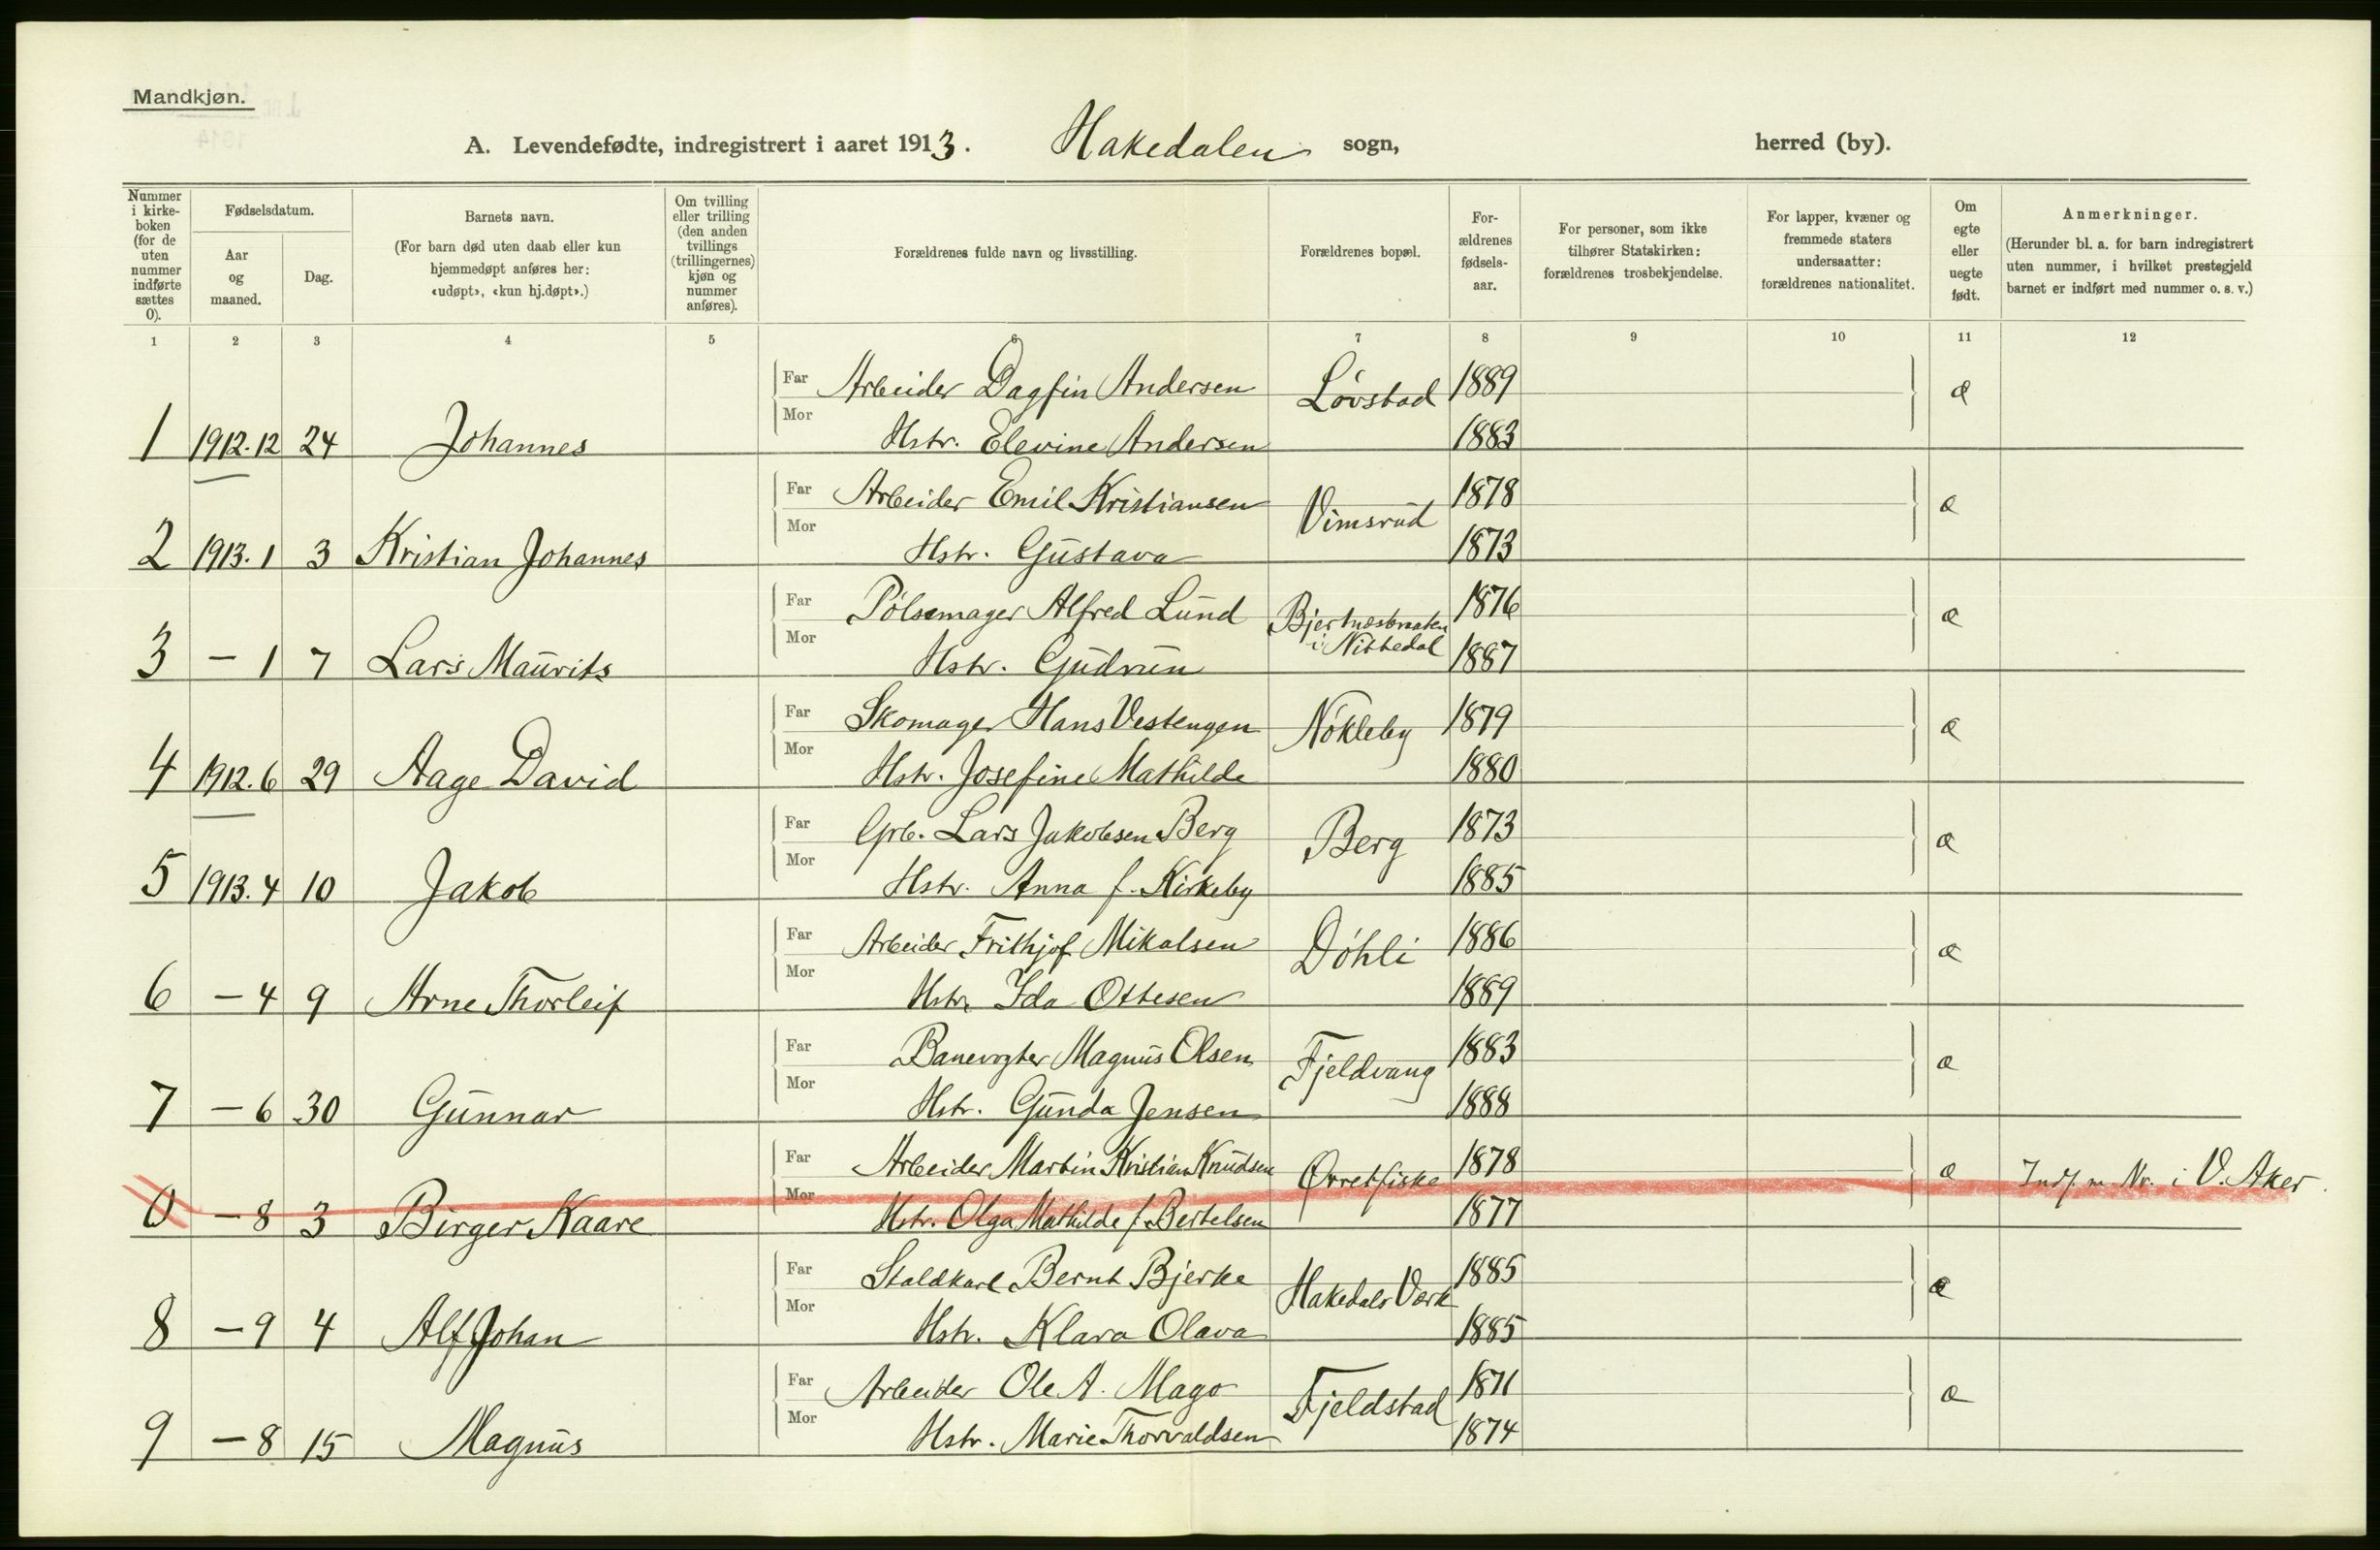 Mandkjøn.
A. Levendefødte, indregistrert i aaret 1913. Hakedalen sogn, herred (by).
Nummer i kirkeboken (for de uten nummer indførte sættes 0).
Fødselsdatum.
Aar og maaned.
Dag.
Barnets navn.
(For barn død uten daab eller kun hjemmedøpt anføres her: «udøpt», «kun hj.døpt».)
Om tvilling eller trilling (den anden tvillings (trillingernes) kjøn og nummer anføres).
Forældrenes fulde navn og livsstilling.
Forældrenes bopæl.
Forældrenes fødselsaar.
For personer, som ikke tilhører Statskirken: forældrenes trosbekjendelse.
For lapper, kvæner og fremmede staters undersaatter: forældrenes nationalitet.
Om egte eller uegte født.
Anmerkninger.
(Herunder bl. a. for barn indregistrert uten nummer, i hvilket prestegjeld barnet er indført med nummer o. s. v.)
1 2 3 4 5 6 7 8 9 10 11 12
Far Arbeider Dagfin Andersen Løvstad 1889 æ
1 1912.12 24 Johannes Mor Hstr. Elevine Andersen 1883
Far Arbeider Emil Kristiansen Vimsrud 1878 æ
2 1913.1 3 Kristian Johannes Mor Hstr. Gustava 1873
Far Pølsemager Alfred Lund Bjertnæsbraaten i Nittedal 1876 æ
3 – 1 7 Lars Maurits Mor Hstr. Gudrun 1887
Far Skomager Hans Vestengen Nøkleby 1879 æ
4 1912.6 29 Aage David Mor Hstr. Josefine Mathilde 1880
Far Grb. Lars Jakobsen Berg Berg 1873 æ
5 1913.4 10 Jakob Mor Hstr. Anna f. Kirkeby 1885
Far Arbeider Frithjof Mikalsen Døhli 1886 æ
6 – 4 9 Arne Thorleif Mor Hstr. Ida Ottesen 1889
Far Banevogter Magnus Olsen Fjeldvang 1883 æ
7 – 6 30 Gunnar Mor Hstr. Gunda Jensen 1888
Far Arbeider Martin Kristian Knudsen Ørretfiske 1878 æ Indf. m Nr. i V. Aker.
0 – 8 3 Birger Kaare Mor Hstr. Olga Mathilde f. Bertelsen 1877
Far Staldkarl Bernt Bjerke Hakedals Værk 1885 æ
8 – 9 4 Alf Johan Mor Hstr. Klara Olava 1885
Far Arbeider Ole A. Mago Fjeldstad 1871 æ
9 – 8 15 Magnus Mor Hstr. Marie Thorvaldsen 1874